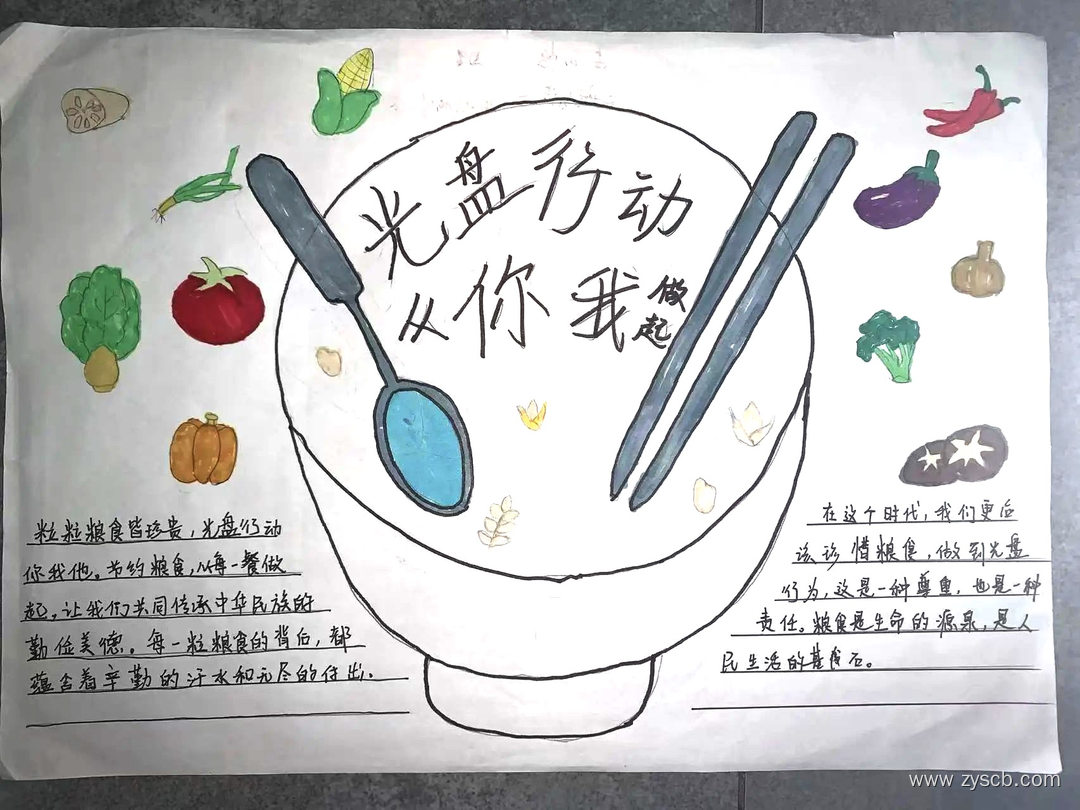 光盘行动
从你我做起
粒粒粮食皆珍贵，光盘行动
你我他。节约粮食，从每一餐做
起，让我们共同传承中华民族的
勤俭美德。每一粒粮食的背后，都
蕴含着辛勤的汗水和无尽的付出.
在这个时代，我们更后
该珍惜粮食，做到光盘
行为，这是一种尊重，也是一种
责任。粮食是生命的源泉，是人
民生活的基石。
www.zyscb.com